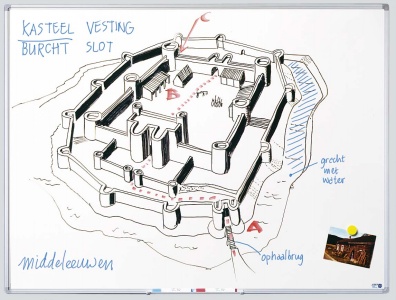 KASTEEL VESTING
BURCHT SLOT
C
B
gracht
met
water
A
ophaalbrug
middeleeuwen